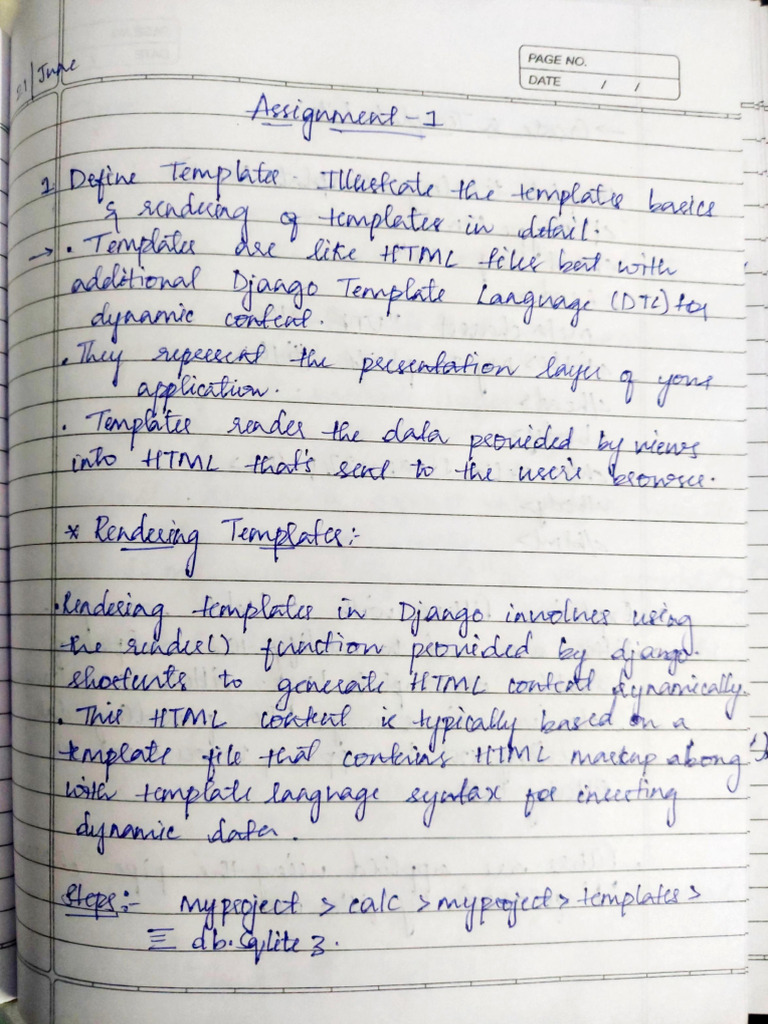 21/June
PAGE NO.
DATE / /
Assignment - 1
1 Define Templates. Illustrate the templates basics
& rendering of templates in detail.
→ • Templates are like HTML files but with
additional Django Template Language (DTL) for
dynamic content.
• They represent the presentation layer of your
application.
• Templates render the data provided by views
into HTML that's sent to the user's browser.
* Rendering Templates:-
• Rendering templates in Django involves using
the render() function provided by django.
shortcuts to generate HTML content dynamically.
• This HTML content is typically based on a
template file that contains HTML markup along
with template language syntax for inserting
dynamic data.
Steps:- myproject > calc > myproject > templates >
≡ db.sqlite 3.